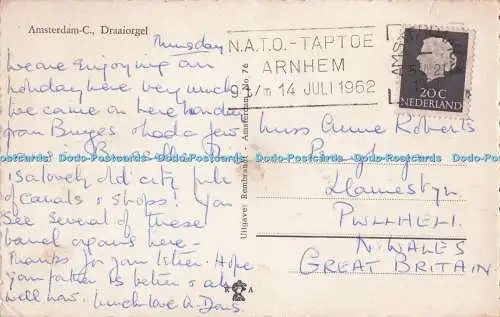 Amsterdam-C., Draaiorgel
Thursday
We are enjoying our
holiday here very much
we came on here Monday
from Bruges & had a few
in Bruxelles.
is a lovely old city full
of Canals & shops! You
see several of these
barrel organs here –
Thanks for your letter. Hope
your father is better & all
well now. Much love A. Doris.
Uitgave: Rembrandt - Amsterdam No. 76
R A
N.A.T.O.-TAPTOE
ARNHEM
9 t/m 14 JULI 1962
AMST
20 C
NEDERLAND
Miss Anne Roberts
Llannestyn
PWLLHELI.
N. WALES
GREAT BRITAIN
Dodo-Postcards Dodo-Postcards Dodo-Postcards Dodo-Postcards Dodo-Postcards